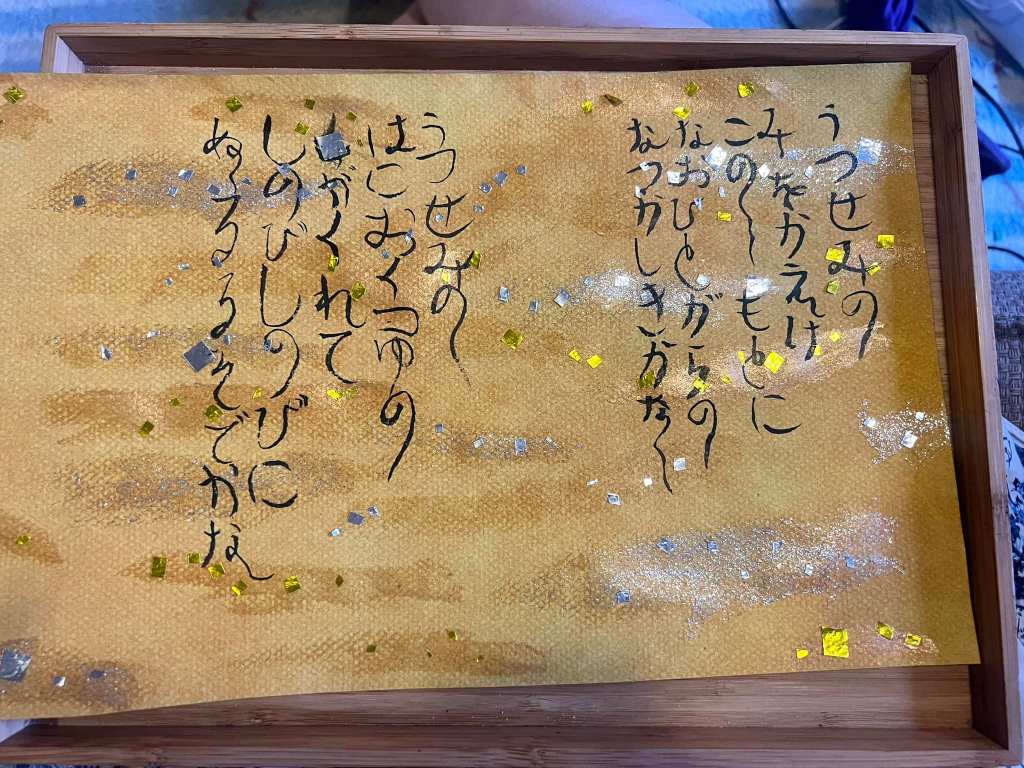 うつせみの
みをかえけ
このもとに
なおひとがらの
なつかしきかな
うつせみの
はにおくつゆの
がくれて
しのびしのびに
ぬるるそでかな